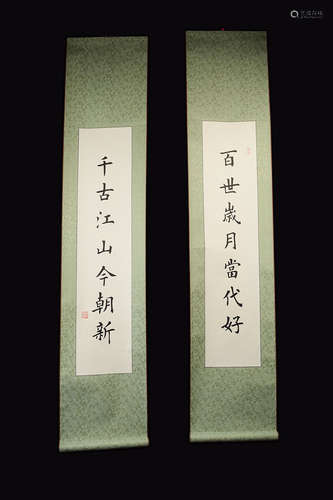 百世歲月當代好
千古江山今朝新